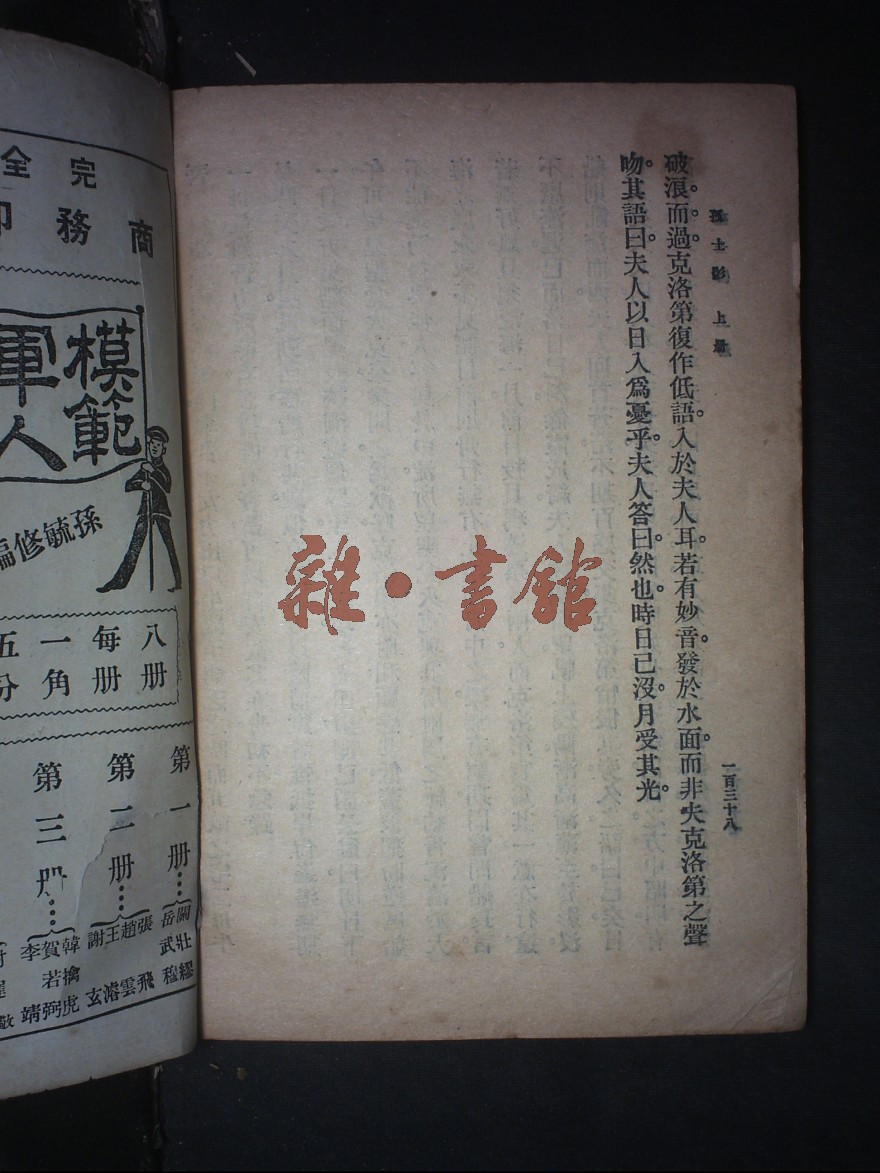 孤士影 上册
破浪。而。過。克洛第復作低語。入於夫人耳。若有妙音。發於水面。而非夫克洛第之聲
吻。其語曰。夫人以日入爲憂乎。夫人答曰。然也。時日已沒。月受其光。
一百三十八
雜·書館
完全
商務印
模範
軍人
孫毓修編
八册
每册
一角
五分
第一册……關壯繆 岳武穆
第二册……張飛 趙雲 王濬 謝玄
第三册……韓擒虎 賀若弼 李靖